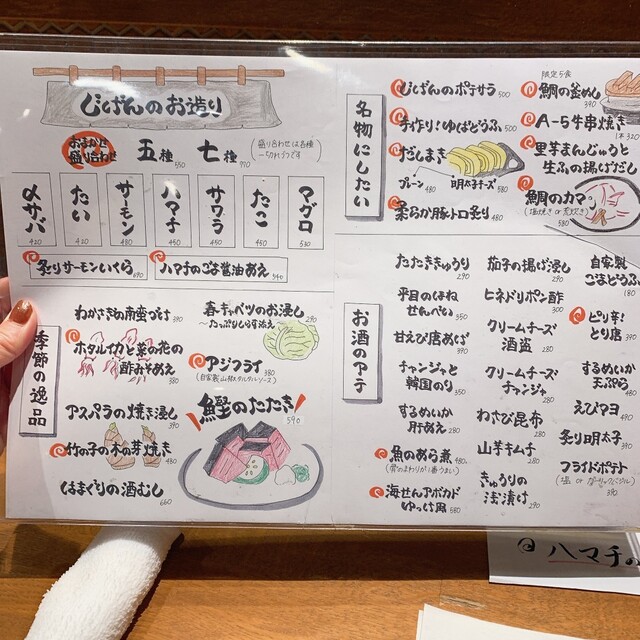 じげんのお造り
おまかせ
盛り合わせ
五種
550
七種
770
(盛り合わせは各種
一切れづつです)
〆サバ
420
たい
420
サーモン
480
ハマチ
450
サワラ
450
たこ
450
マグロ
530
炙りサーモンいくら 690
ハマチのごま醤油あえ 540
季節の逸品
わかさぎの南蛮づけ 390
ホタルイカと菜の花の
酢みそあえ
380
アスパラの焼き浸し
390
竹の子の木の芽焼き
480
はまぐりの酒むし
660
春キャベツのお浸し
〜たっぷりしらす添え
290
アジフライ
380
鰹のたたき
590
名物にしたい
じげんのポテサラ
500
手作り!ゆばどうふ
500
だしまき
プレーン
480
明太チーズ
580
柔らか豚トロ炙り
480
限定5食
鯛の釜めし
390
A-5牛串焼き
1本 320
里芋まんじゅうと
生ふの揚げだし
鯛のカマ
(塩焼き or 煮炊き)
お酒のアテ
たたききゅうり
290
平目のはね
せんべい
350
甘えび唐あげ
390
チャンジャと
韓国のり
350
するめいか
肝あえ
280
魚のあら煮
480
(骨のまわりが1番うまい)
海せんアボカド
ゆっけ風
580
茄子の揚げ浸し
290
ヒネドリポン酢
300
クリームチーズ
酒盗
280
クリームチーズ
チャンジャ
280
わさび昆布
280
山芋キムチ
280
きゅうりの
浅漬け
290
自家製
ごまどうふ
180
ピリ辛!
とり唐
390
するめいか
天ぷら
480
えびマヨ
490
炙り明太子
390
フライドポテト
(塩 or ガーリックバジル)
390
ハマチの